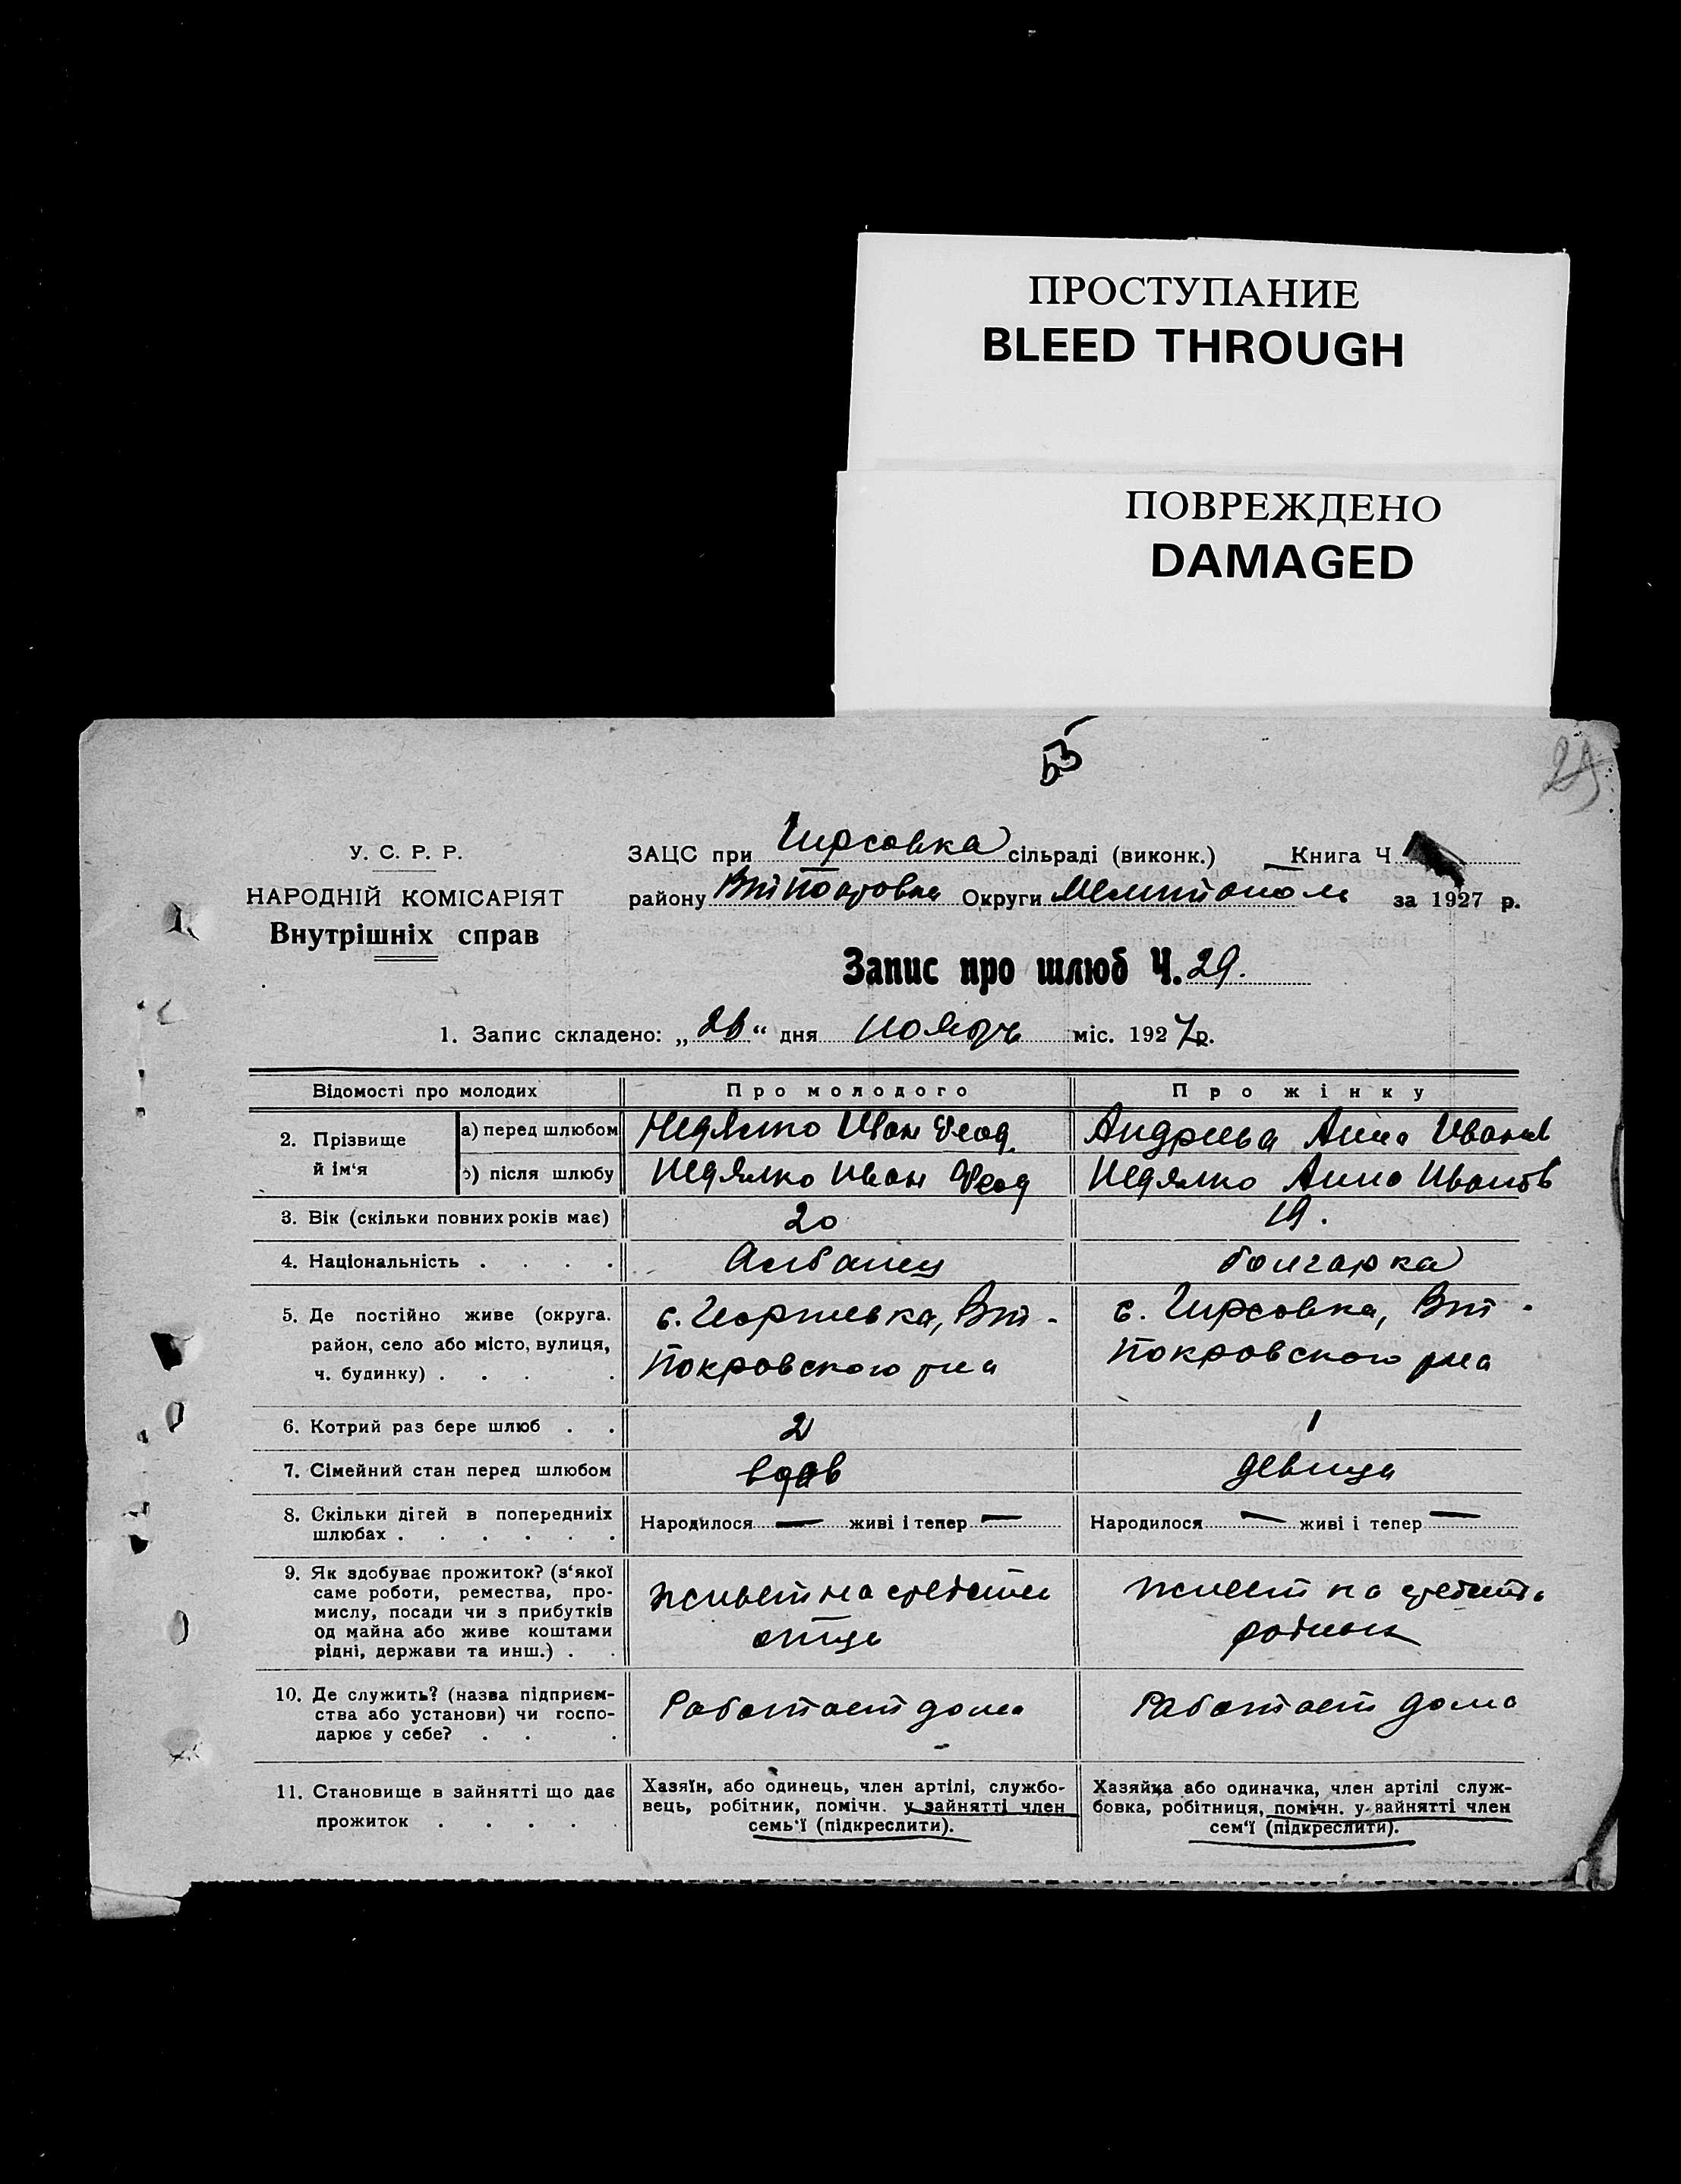 ПРОСТУПАНИЕ
BLEED THROUGH
ПОВРЕЖДЕНО
DAMAGED
53
29
У. С. Р. Р.
НАРОДНІЙ КОМІСАРІЯТ
Внутрішніх справ
ЗАЦС при Гирсовка сільраді (виконк.) Книга Ч
району Округи Мелитополь за 1927 р.
Запис про шлюб Ч. 29.
1. Запис складено: „ “ дня ноябрь міс. 1927 р.
Відомості про молодих Про молодого Про жінку
2. Прізвище й ім‘я а) перед шлюбом Недялко Иван Феод. Андреева Анна Иванов
б) після шлюбу Недялко Иван Феод Недялко Анна Иванов
3. Вік (скільки повних років має) 20 19.
4. Національність . . . . Албанец болгарка
5. Де постійно живе (округа. район, село або місто, вулиця, ч. будинку) . . . . с. Георгиевка, Вт - Покровского р-на с. Гирсовка, Вт - Покровского р-на
6. Котрий раз бере шлюб . . 2 1
7. Сімейний стан перед шлюбом вдов девица
8. Скільки дітей в попередниіх шлюбах . . . . . . Народилося — живі і тепер — Народилося — живі і тепер —
9. Як здобуває прожиток? (з‘якої саме роботи, ремества, промислу, посади чи з прибутків од майна або живе коштами рідні, держави та инш.) . . живет на средства отца живет на средства
10. Де служить? (назва підприємства або установи) чи господарює у себе? . . . Работает дома Работает дома
11. Становище в зайнятті що дає прожиток . . . . . Хазяїн, або одинець, член артілі, службовець, робітник, помічн. у зайнятті член семь‘ї (підкреслити). Хазяйка або одиначка, член артілі службовка, робітниця, помічн. у зайнятті член сем‘ї (підкреслити).